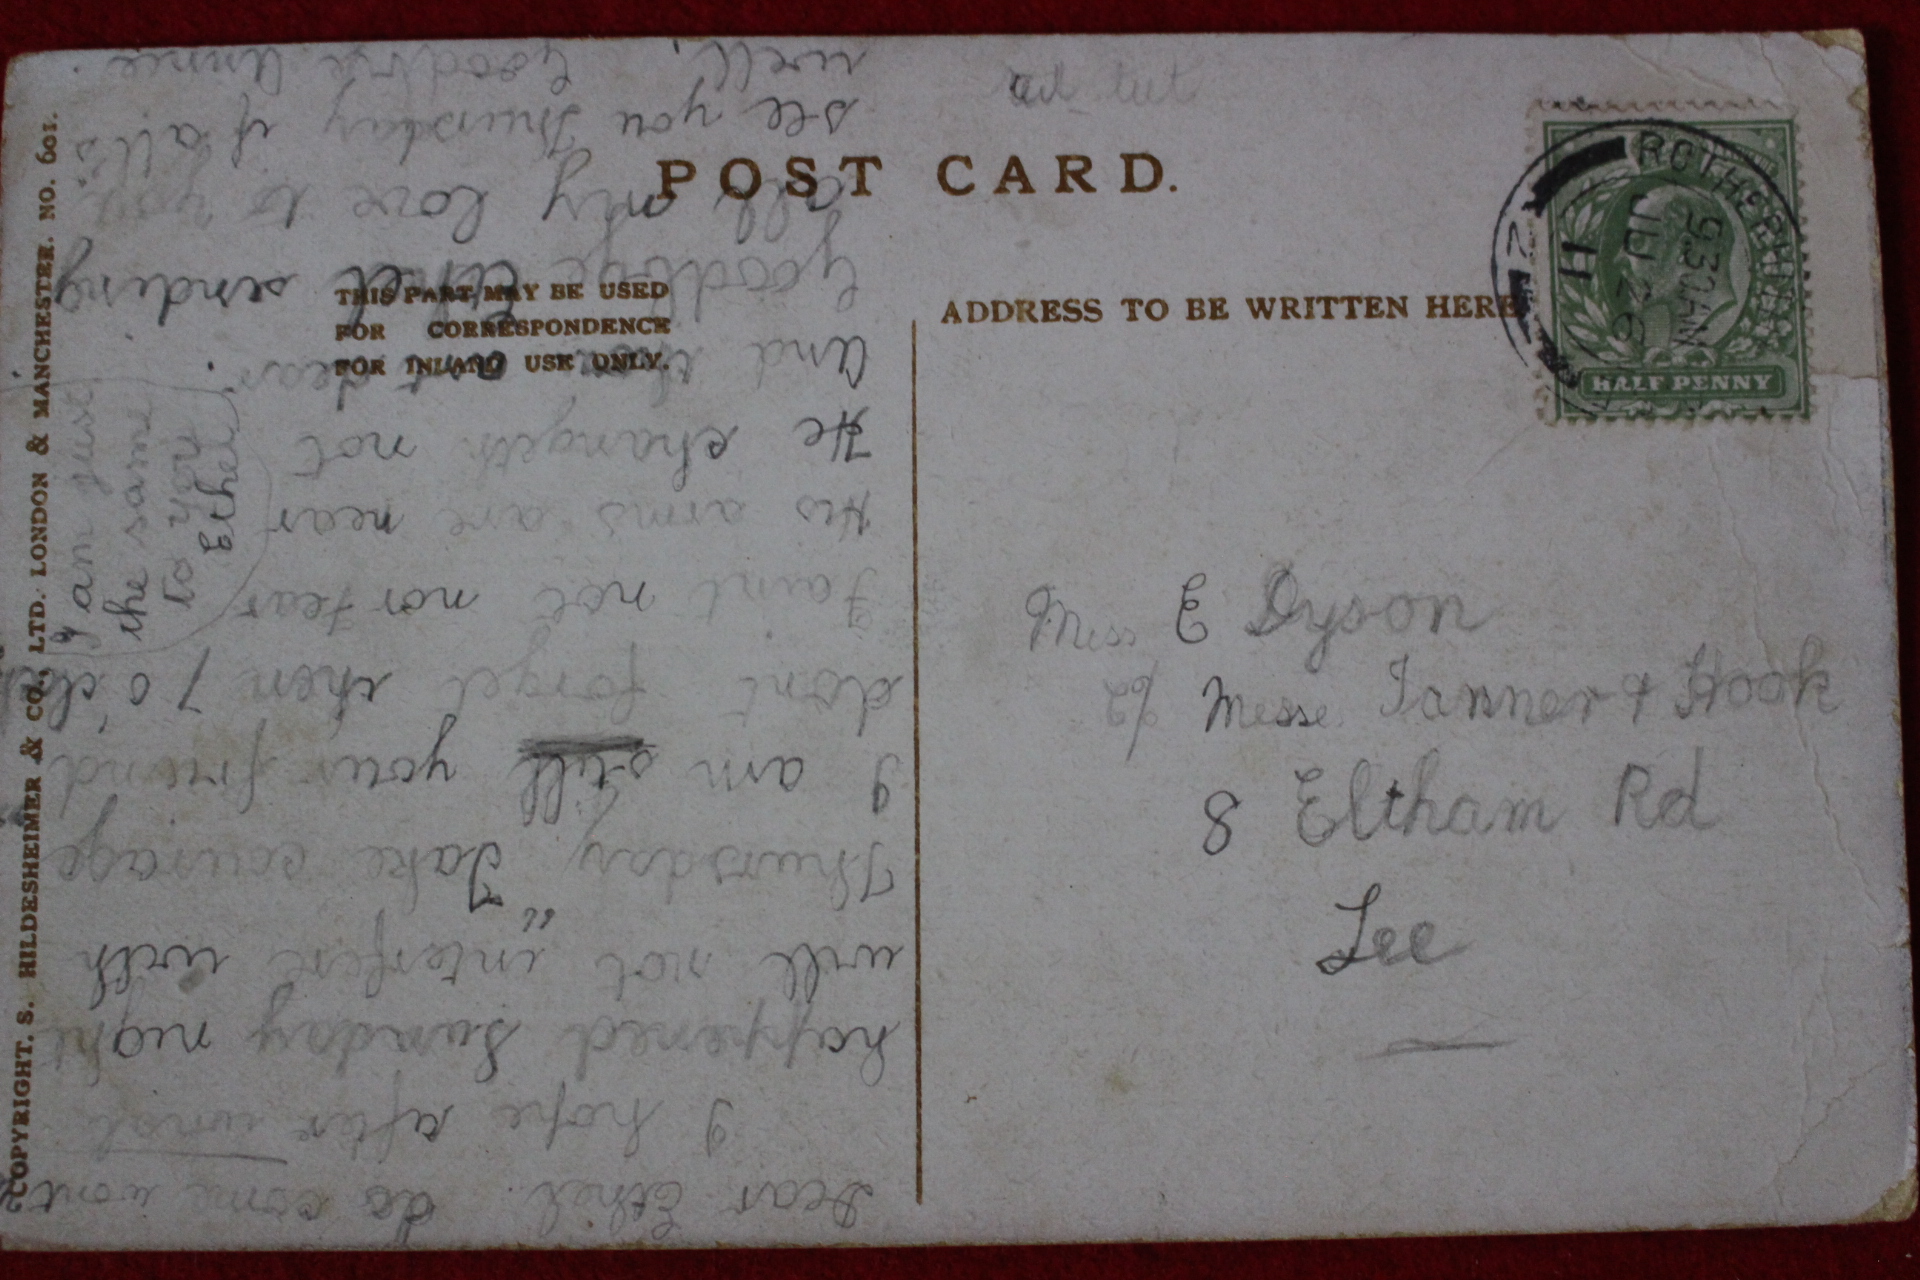 POST CARD.
THIS PART MAY BE USED
FOR CORRESPONDENCE
FOR INLAND USE ONLY.
ADDRESS TO BE WRITTEN HERE
COPYRIGHT. S. HILDESHEIMER & CO., LTD. LONDON & MANCHESTER. NO. 601.
ROTHERHITHE
9.30 AM
JU 26
11
HALF PENNY
Miss E Dyson
c/o Messe Tanner & Hook
8 Eltham Rd
Lee
Dear Ethel. do come wont
I hope after what
happened Sunday night
will not "interfere with
Thursday Take courage
I am still your friend
dont forget then 7 o'clock
Faint not nor fear
His arms are near
He changeth not
And thou art dear.
Goodbye Ethel sending
all my love to you.
see you Thursday if all's
well. Goodbye Annie.
I am just
the same
to you
Ethel